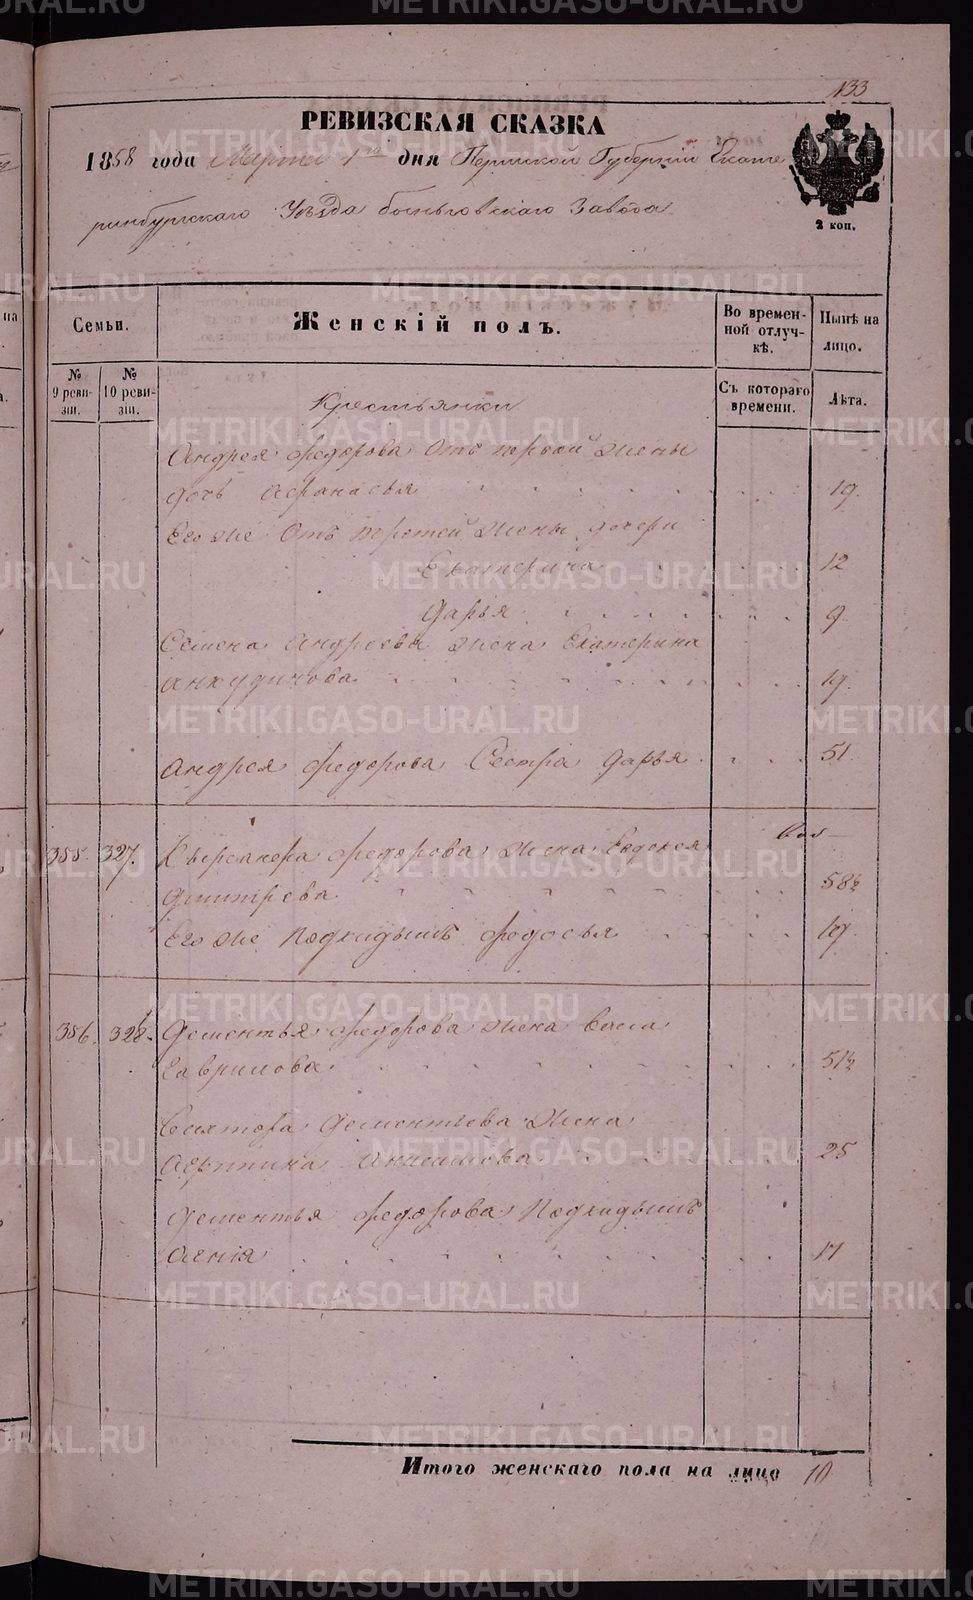 133
РЕВИЗСКАЯ СКАЗКА
1858 года Марта 1го дня Пермской Губернии Екате
ринбургскаго Уѣзда быньговскаго Завода
2 коп.
Семьи.
Женскій полъ.
Во времен-
ной отлуч-
кѣ.
Нынѣ на
лицо.
№
9 реви-
зіи.
№
10 реви-
зіи.
Съ котораго
времени.
Лѣта.
Крестьянки
Андрея федорова Отъ первой жены
дочь Афанасья 19.
Его же Отъ третей жены дочери
Екатерина 12
Дарья 9.
Семена Андреева жена Екатерина
Анкудинова 19.
Андрея федорова Сестра дарья 51
355. 327. федорова жена Евдокея
дмитрева 58½
Его же Подкидышъ федосья 19.
356. 328. Дементья федорова жена васса
Гаврилова 51½
Виктора дементьева жена
Анисимова 25
Дементья федорова Подкидышъ
17
Итого женскаго пола на лицо 10
METRIKI.GASO-URAL.RU